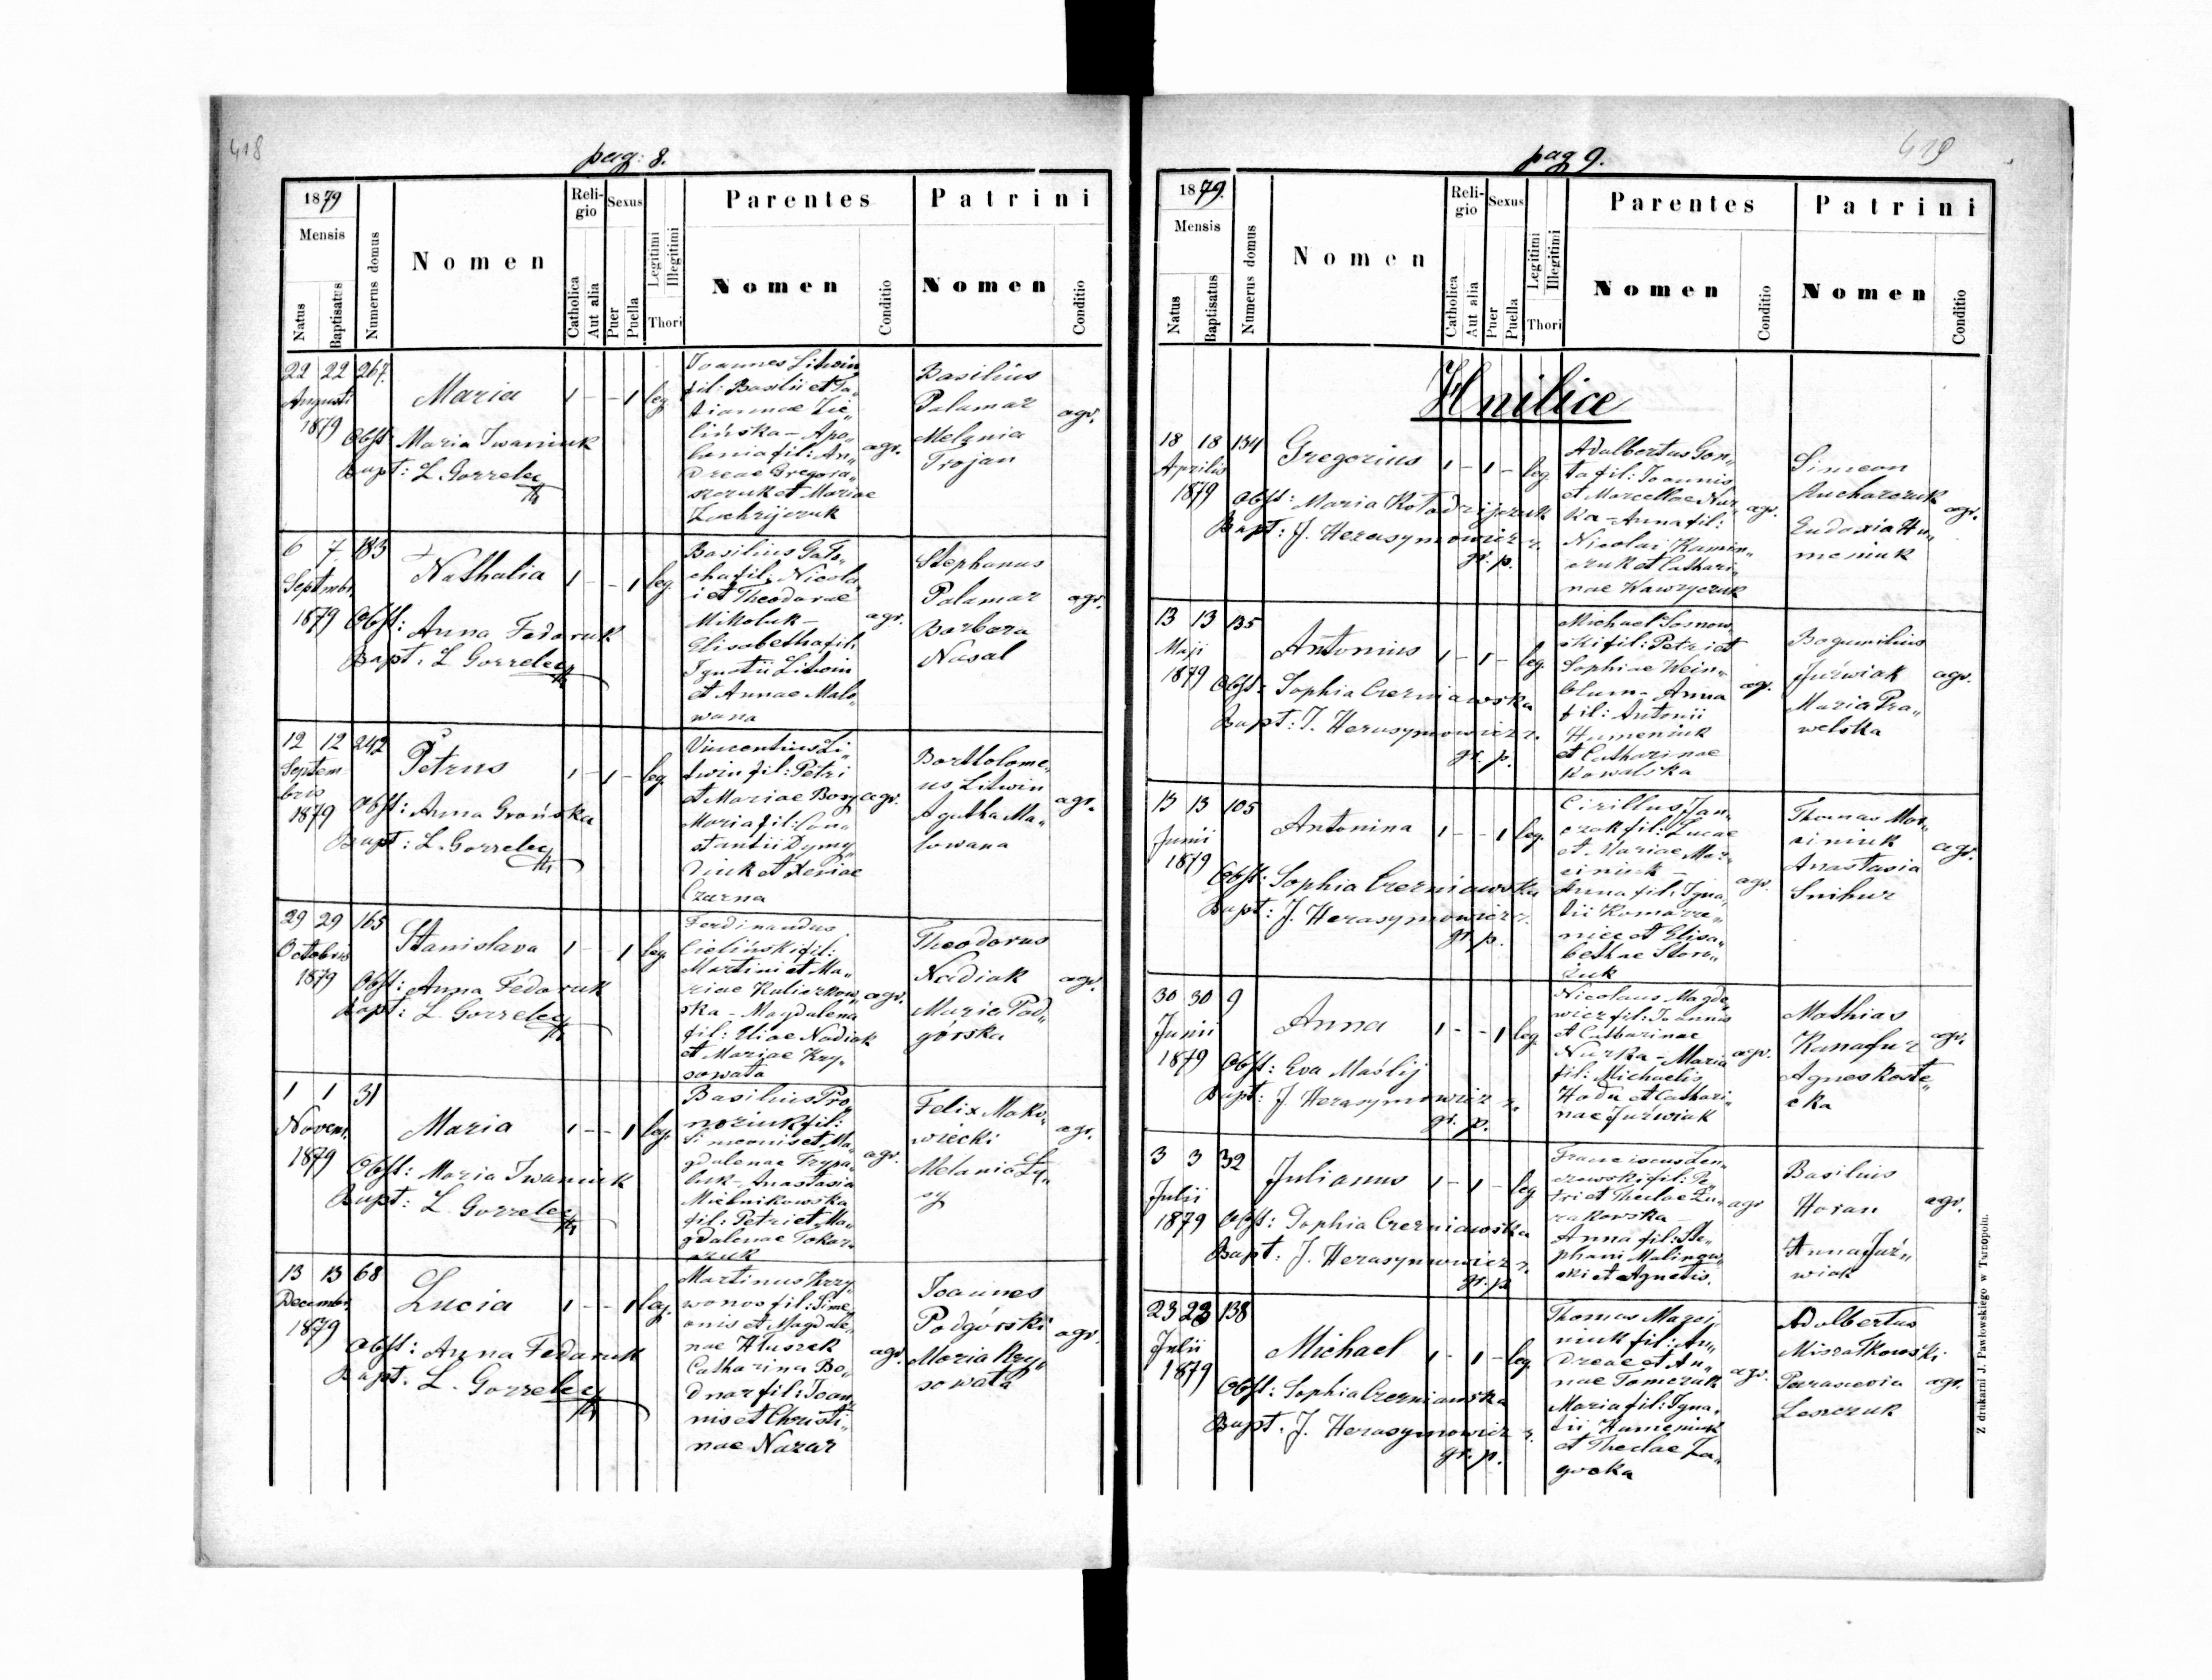 418
pag: 8.
1879
Mensis
Natus
Baptisatus
Numerus domus
Nomen
Religio
Catholica
Aut alia
Sexus
Puer
Puella
Legitimi
Illegitimi
Thori
Parentes
Nomen
Conditio
Patrini
Nomen
Conditio
22 22 267.
Augusti
1879
Maria
1 - - 1 leg.
Obst: Maria Iwaniuk
Bapt: L. Gorzelec
Joannes Litwin
fil: Basilii et Ta„
tiannae Zie„
lińska - Apo„
lonia fil: An„
dreae Gregora„
szczuk et Mariae
Zachryjczuk
agr.
Basilius
Palamar
Melania
Trojan
agr.
6 7 183
Septembr.
1879
Nathalia
1 - - 1 leg.
Obst: Anna Fedoruk
Bapt. L Gorzelec
Basilius
cha fil: Nicola„
i et Theodorae
Mikoluk -
Elisabetha fil:
Ignatii Litwin
et Annae Malo„
wana
agr.
Stephanus
Palamar
Barbara
Nasal
agr.
12 12 242
Septem
bris
1879
Petrus
1 - 1 - leg.
Obst: Anna Grońska
Bapt: L. Gorzelec
Vincentius Li„
twin fil: Petri
et Mariae Bosy
Maria fil: Con„
stantii Dymy„
diuk et Xeniae
Czarna
agr.
Bartholome„
us Litwin
Agatha Ma„
lowana
agr.
29 29 165
Octobris
1879
Stanislava
1 - - 1 leg.
Obst: Anna Fedoruk
Bapt: L. Gorzelec
Ferdinandus
Cieliński fil:
Martini et Ma„
riae Kuliczkow„
ska - Magdalena
fil: Eliae Nadiak
et Mariae Kry„
sowata
agr.
Theodorus
Nadiak
Maria Pod„
górska
agr.
1 1 31
Novem.
1879
Maria
1 - - 1 leg.
Obst: Maria Iwaniuk
Bapt: L. Gorzelec
Basilius Pro„
noziuk fil:
Simeonis et Ma„
gdalenae Trypa„
luk - Anastasia
Mielnikowska
fil: Petri et Ma„
gdalenae Tokar„
czuk
agr.
Felix Mako„
wiecki
Melania Ły„
sy
agr.
13 13 68
Decembr.
1879
Lucia
1 - - 1 leg.
Obst: Anna Fedoruk
Bapt. L. Gorzelec
Martinus Krzy„
wonos fil: Sime„
onis et Magdale„
nae Hluszek
Catharina Bo„
dnar fil: Joan„
nis et Christi„
nae Nazar
agr.
Joannes
Podgórski
Maria Kry„
sowata
agr.
419
pag 9.
1879.
Mensis
Natus
Baptisatus
Numerus domus
Nomen
Religio
Catholica
Aut alia
Sexus
Puer
Puella
Legitimi
Illegitimi
Thori
Parentes
Nomen
Conditio
Patrini
Nomen
Conditio
Hnilice
18 18 134
Aprilis
1879
Gregorius
1 - 1 - leg.
Obst: Maria Kołodzijczuk
Bapt: J. Herasymowicz r.
gr. p.
Adalbertus Gon„
ta fil: Joannis
et Marcellae Nur„
ka - Anna fil:
Nicolai Kamin„
czuk et Cathari„
nae Wawryczuk
agr.
Simeon
Kucharczuk
Eudoxia Hu„
meniuk
agr.
13 13 135
Maji
1879
Antonius
1 - 1 - leg.
Obst: Sophia Czerniawska
Bapt: J. Herasymowicz r.
gr. p.
Michael Sosnow„
ski fil: Petri et
Sophiae Wein„
blum - Anna
fil: Antonii
Humeniuk
et Catharinae
Kowalska
agr.
Bogumilius
Juźwiak
Maria Pra„
welska
agr.
13 13 105
Junii
1879
Antonina
1 - - 1 leg.
Obst: Sophia Czerniawska
Bapt: J. Herasymowicz r.
gr. p.
Cirillus Jan„
czak fil: Lucae
et Mariae Mar„
ciniuk -
Anna fil: Igna„
tii Komarze„
niec et Elisa„
bethae Storo„
żuk
agr.
Thomas Mar„
ciniuk
Anastasia
Snihur
agr.
30 30 9
Junii
1879
Anna
1 - - 1 leg.
Obst: Eva Maślij
Bapt: J. Herasymowicz r.
gr. p.
Nicolaus Magde„
wicz fil: Joannis
et Catharinae
Nurka - Maria
fil: Michaelis
Hodu et Cathari„
nae Juźwiak
agr.
Mathias
Kanafur
Agnes Koste„
cka
agr.
3 3 32
Julii
1879
Julianus
1 - 1 - leg
Obst: Sophia Czerniawska
Bapt: J. Herasymowicz r.
gr. p.
Franciscus Len„
czewski fil: Pe„
tri et Theclae Żu„
rakowska
Anna fil: Ste„
phani Malinow„
ski et Agnetis.
agr
Basilius
Horan
Anna Juź„
wiak
agr.
23 23 138
Julii
1879
Michael
1 - 1 - leg.
Obst: Sophia Czerniawska
Bapt. J. Herasymowicz r.
gr. p.
Thomas
niuk fil: An„
dreae et An„
nae Tomczuk
Maria fil: Igna„
tii Humeniuk
et Theclae Za„
gocka
agr.
Adalbertus
Miszatkowski
Parascevia
Leszczuk
agr.
Z drukarni J. Pawłowskiego w Tarnopolu.